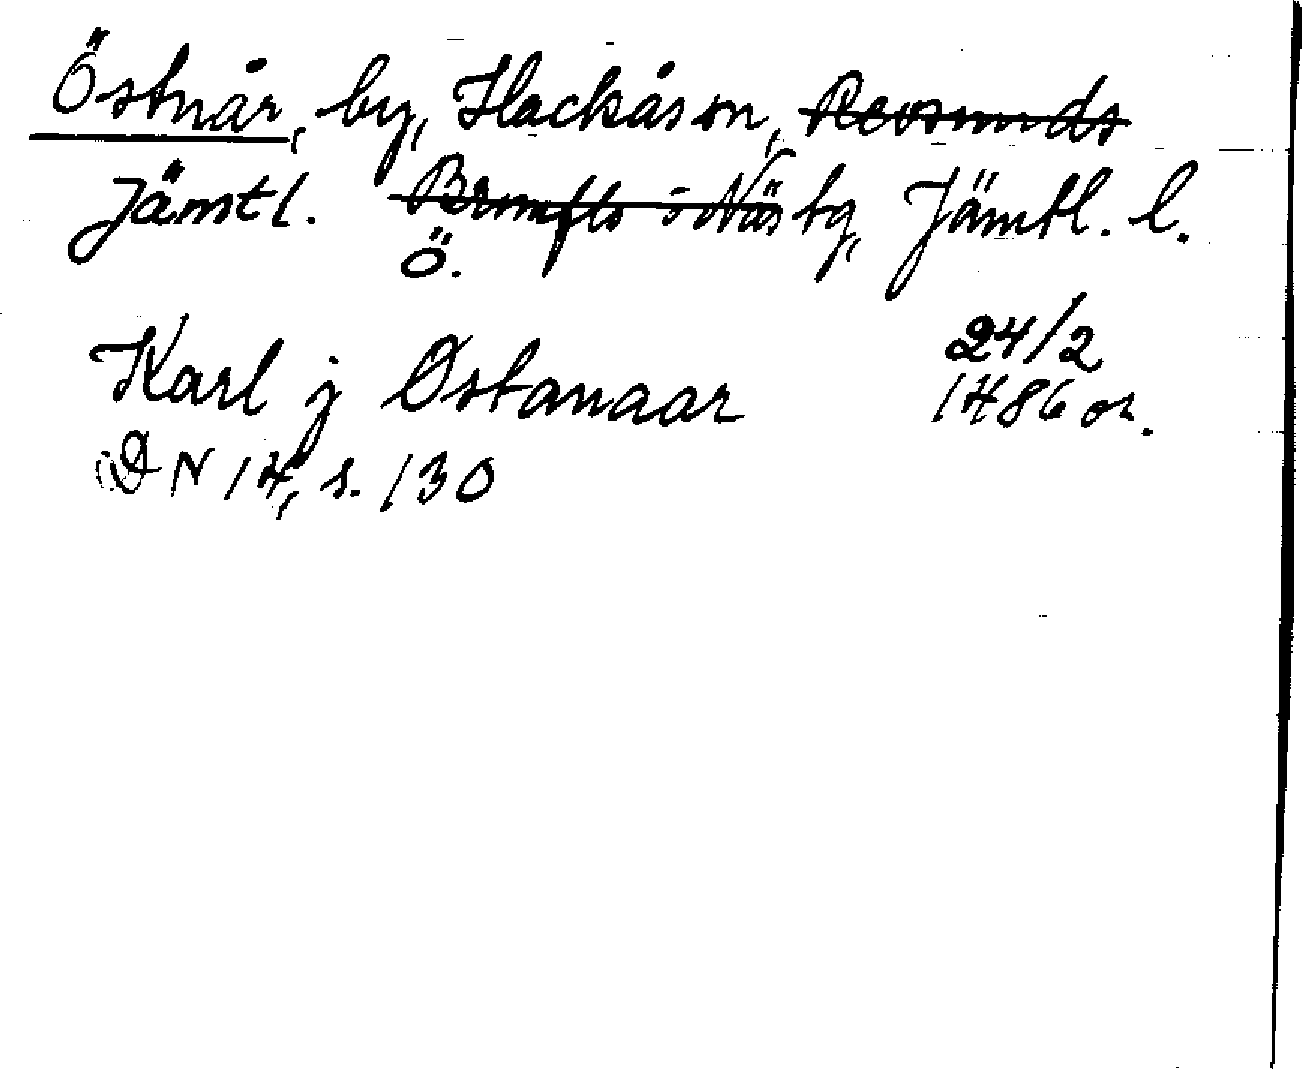 Östnår, by, Hackås sn, Revsunds
Jämtl. Brunflo o Näs tg, Jämtl. l.
Ö.
Karl j Østanaar 24/2
1486 or.
DN 14, s. 130